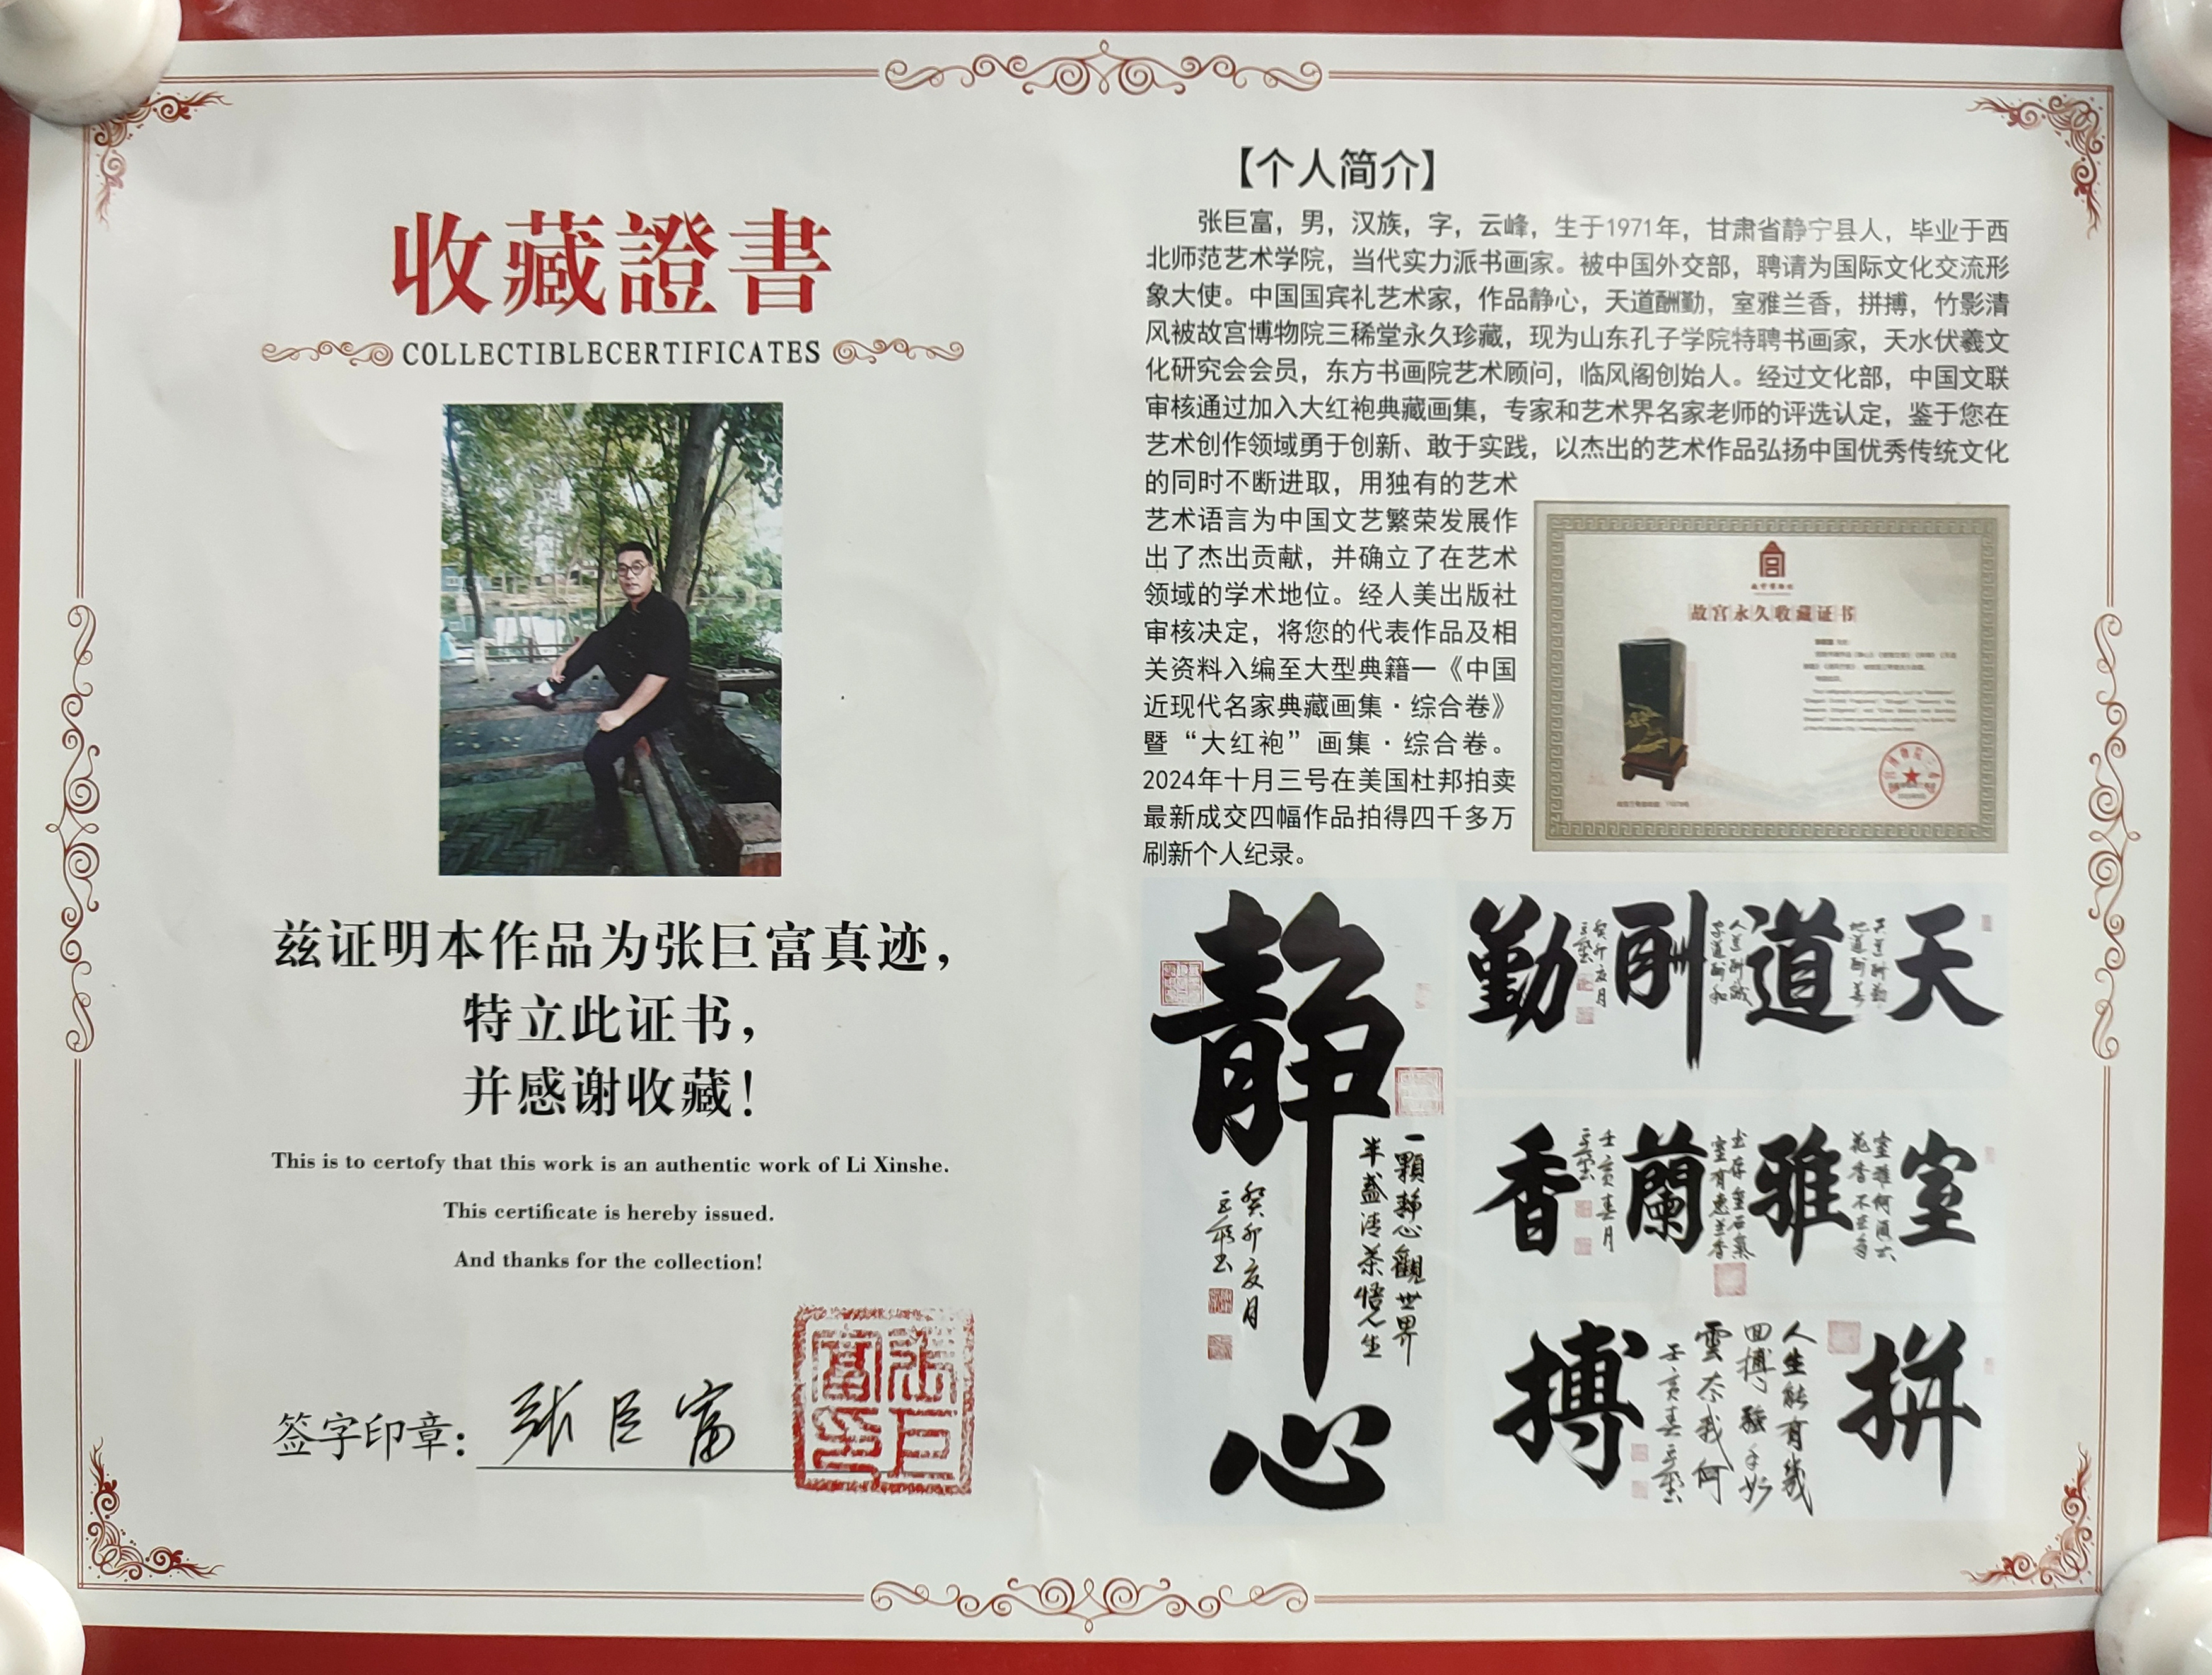 收藏證書
COLLECTIBLECERTIFICATES
兹证明本作品为张巨富真迹，
特立此证书，
并感谢收藏！
This is to certofy that this work is an authentic work of Li Xinshe.
This certificate is hereby issued.
And thanks for the collection!
签字印章：张巨富
【个人简介】
张巨富，男，汉族，字，云峰，生于1971年，甘肃省静宁县人，毕业于西
北师范艺术学院，当代实力派书画家。被中国外交部，聘请为国际文化交流形
象大使。中国国宾礼艺术家，作品静心，天道酬勤，室雅兰香，拼搏，竹影清
风被故宫博物院三稀堂永久珍藏，现为山东孔子学院特聘书画家，天水伏羲文
化研究会会员，东方书画院艺术顾问，临风阁创始人。经过文化部，中国文联
审核通过加入大红袍典藏画集，专家和艺术界名家老师的评选认定，鉴于您在
艺术创作领域勇于创新、敢于实践，以杰出的艺术作品弘扬中国优秀传统文化
的同时不断进取，用独有的艺术
艺术语言为中国文艺繁荣发展作
出了杰出贡献，并确立了在艺术
领域的学术地位。经人美出版社
审核决定，将您的代表作品及相
关资料入编至大型典籍一《中国
近现代名家典藏画集·综合卷》
暨“大红袍”画集·综合卷。
2024年十月三号在美国杜邦拍卖
最新成交四幅作品拍得四千多万
刷新个人纪录。
故宫永久收藏证书
静心
一顆静心觀世界
半盏清茶悟人生
癸卯亥月
天道酬勤
癸卯亥月
室雅蘭香
壬寅春月
拼搏
人生能有幾
回搏